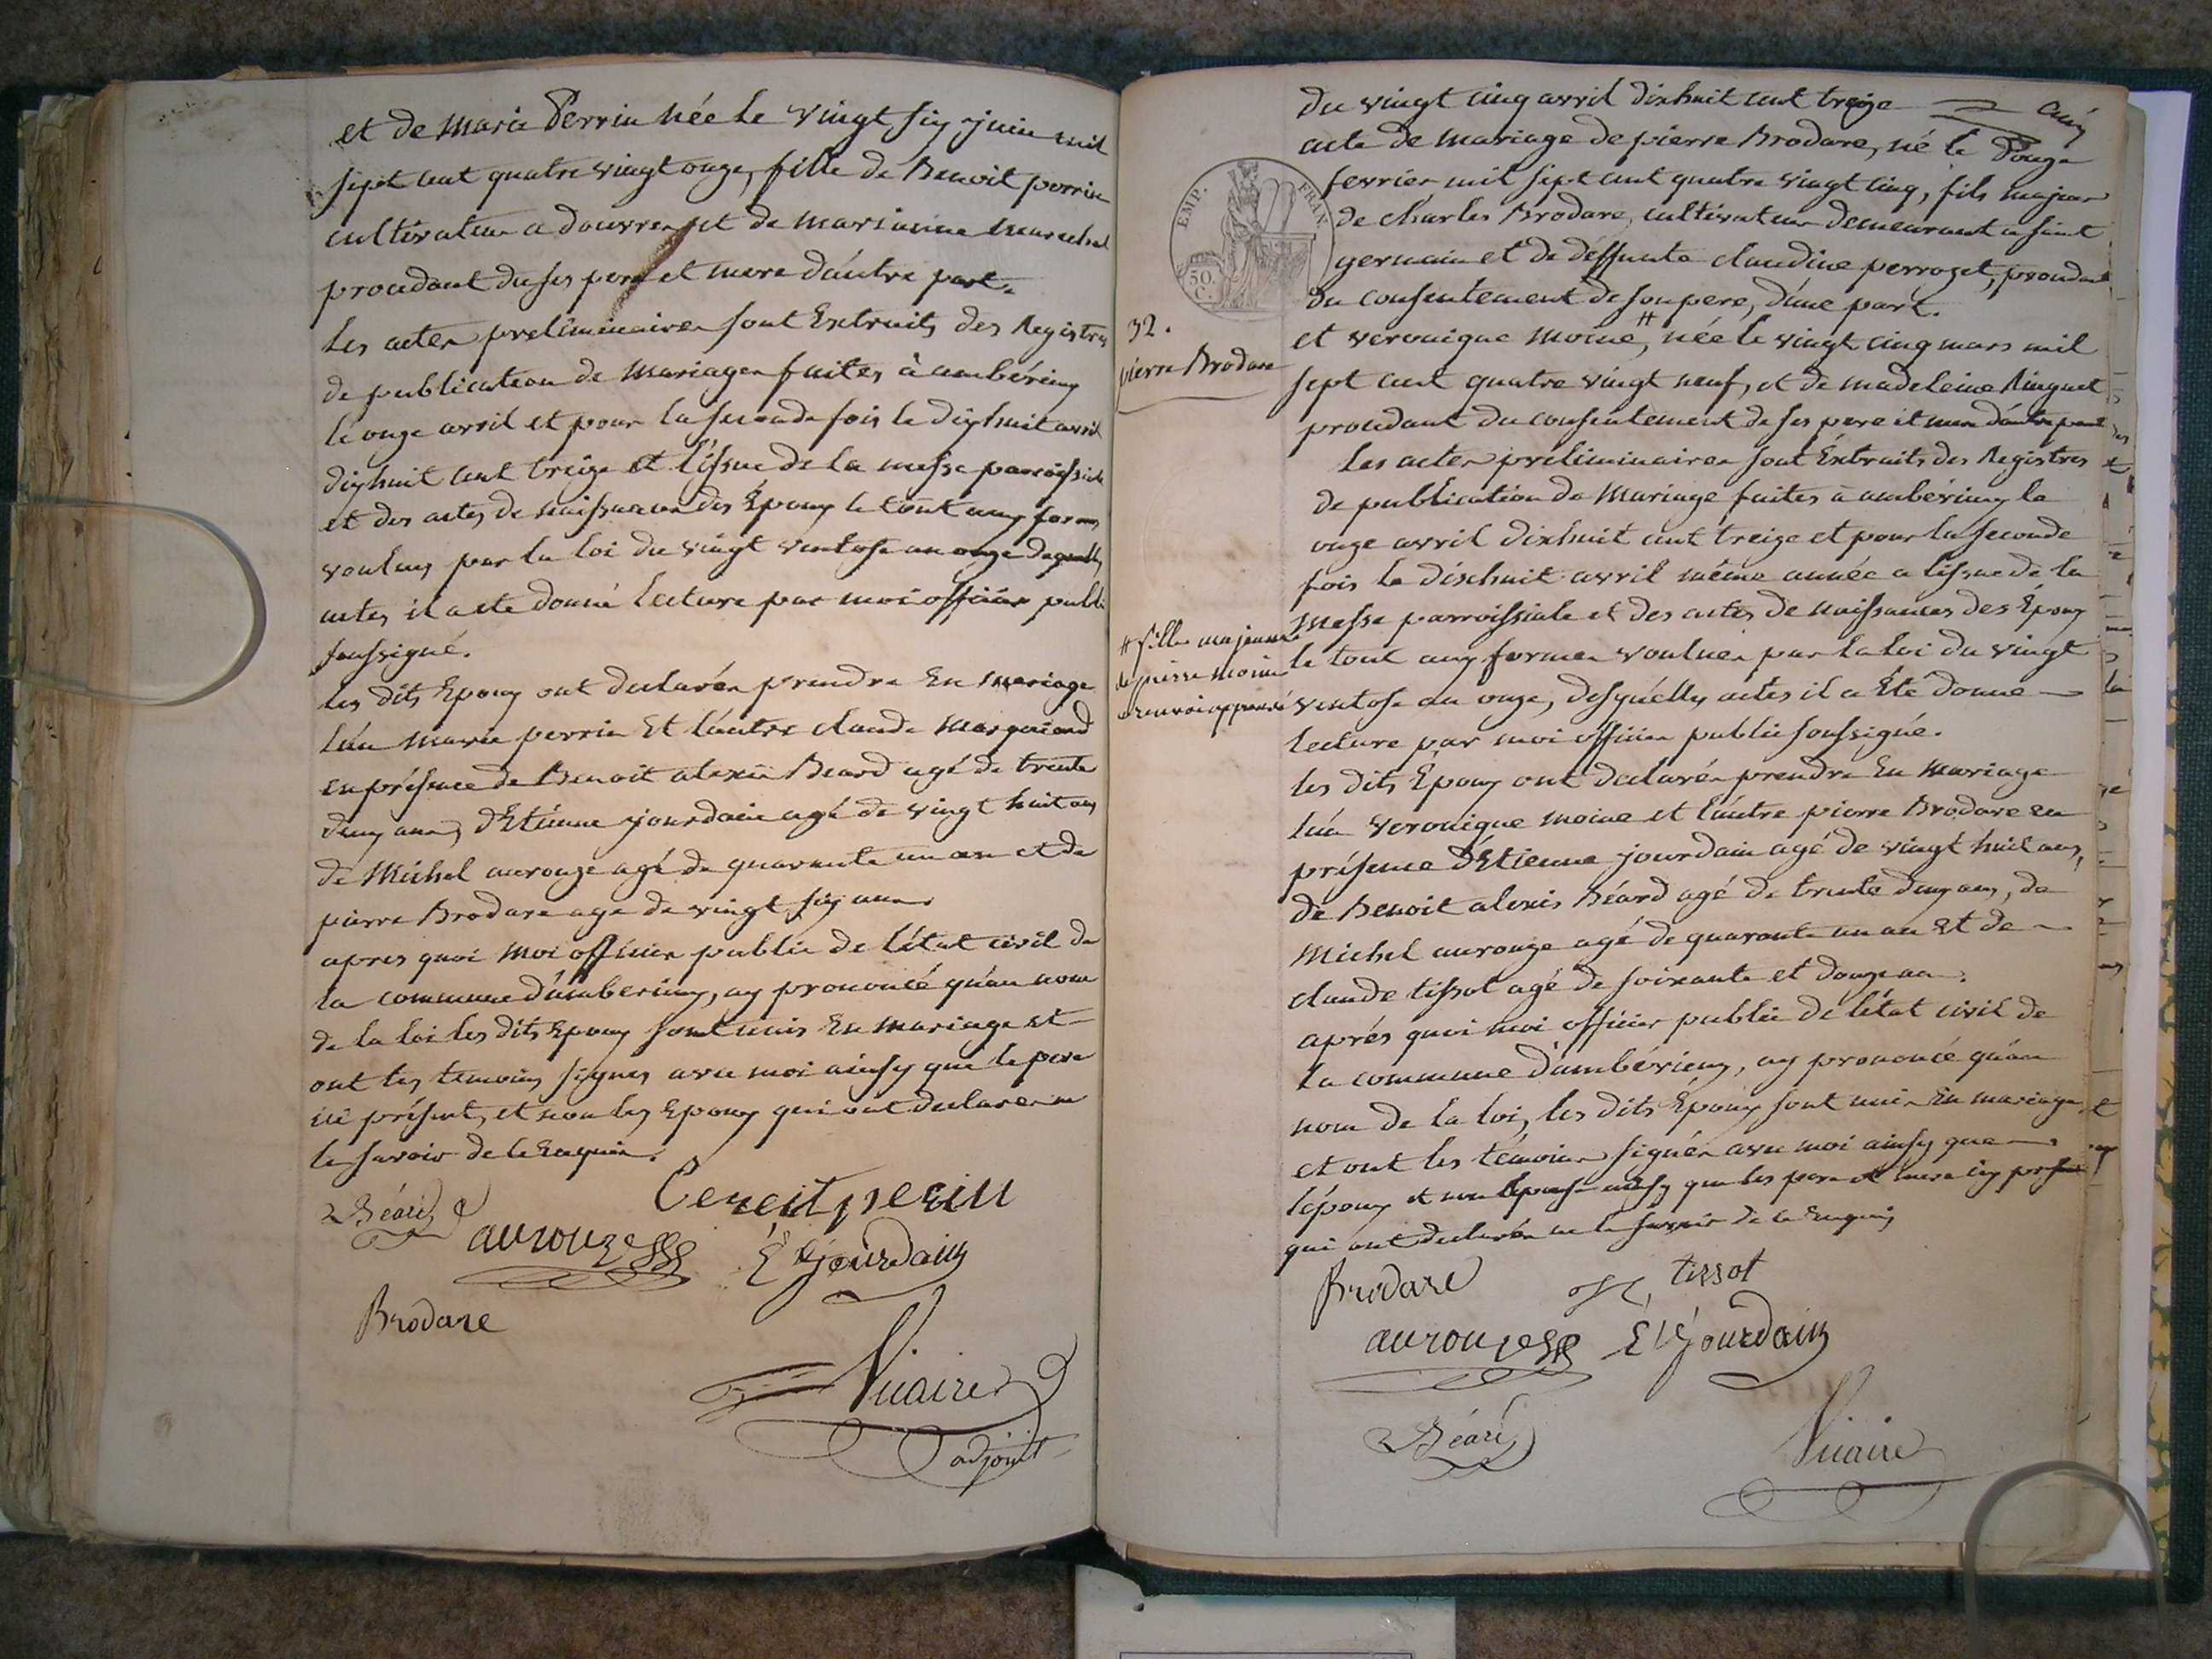 et de marie Perrin née le vingt six juin mil
sept cent quatre vingt onze, fille de Benoit perrin
cultivateur a douvres et de marianne marechal
procedant de ses pere et mere d'autre part.
les actes preliminaires sont Extraits des Registres
de publication de Mariages faites à ambérieux
le onze avril et pour la seconde fois le dixhuit avril
dixhuit cent treize et l'issue de la messe paroissiale
et des actes de naissances des Epoux le tout aux formes
voulues par la loi du vingt ventose an onze desquelles
actes il a ete donné lecture par moi officier public
soussigné.
les dits Epoux ont declarés prendre En mariage
l'un marie perrin Et l'autre claude
en présence de Benoit alexis Beard agé de trente
deux ans, d'Etienne jourdain agé de vingt huit ans
de Michel aurouze agé de quarante un an et de
pierre Brodare age de vingt six ans
apres quoi moi officier public de l'état civil de
la commune d'amberieux, ay prononcé qu'au nom
de la loi les dits Epoux sont unis En mariage et
ont les temoins signes avec moi ainsy que le pere
ici présent, et non les Epoux qui ont declarer ne
le savoir de le Enquis.
Béard
aurouze
Benoit perin
Et jourdain
Brodare
Vicaire
adjoint
32.
pierre Brodare
# fille majeure
de pierre moine
renvoi approuvé
EMP. FRAN.
50. C.
du vingt cinq avril dixhuit cent treize
acte de mariage de pierre Brodare, né le douze
fevrier mil sept cent quatre vingt cinq, fils majeur
de charles Brodare, cultivateur demeurant a saint
germain et de deffunte claudine perrozet, procedant
du consentement de son pere, d'une part.
et veronique moine #, née le vingt cinq mars mil
sept cent quatre vingt neuf, et de madeleine Ringuet
procedant du consentement de ses pere et mere d'autre part
les actes préliminaires sont Extraits des Registres
de publication de Mariage faites à ambérieux le
onze avril dixhuit cent treize et pour la seconde
fois le dixhuit avril même année a l'issue de la
messe parroissiale et des actes de naissances des Epoux
le tout aux formes voulues par la loi du vingt
ventose an onze, desquelles actes il a Été donné
lecture par moi officier public soussigné.
les dits Epoux ont declarés prendre En mariage
l'un veronique moine et l'autre pierre Brodare en
présence d'Etienne jourdain agé de vingt huit ans,
de Benoit alexis Béard agé de trente deux ans, de
Michel aurouze agé de quarante un an Et de
claude tissot agé de soixante et douze an.
après quoi moi officier public de l'état civil de
la commune d'ambérieux, ay prononcé qu'au
nom de la loi, les dits Epoux sont unis En mariage
et ont les témoins signés avec moi ainsy que
l'époux et non l'épouse ainsy que les pere et mere icy présent
qui ont declarés ne le savoir de le Enquis
Brodare
tissot
aurouze
Et jourdain
Béard
Vicaire